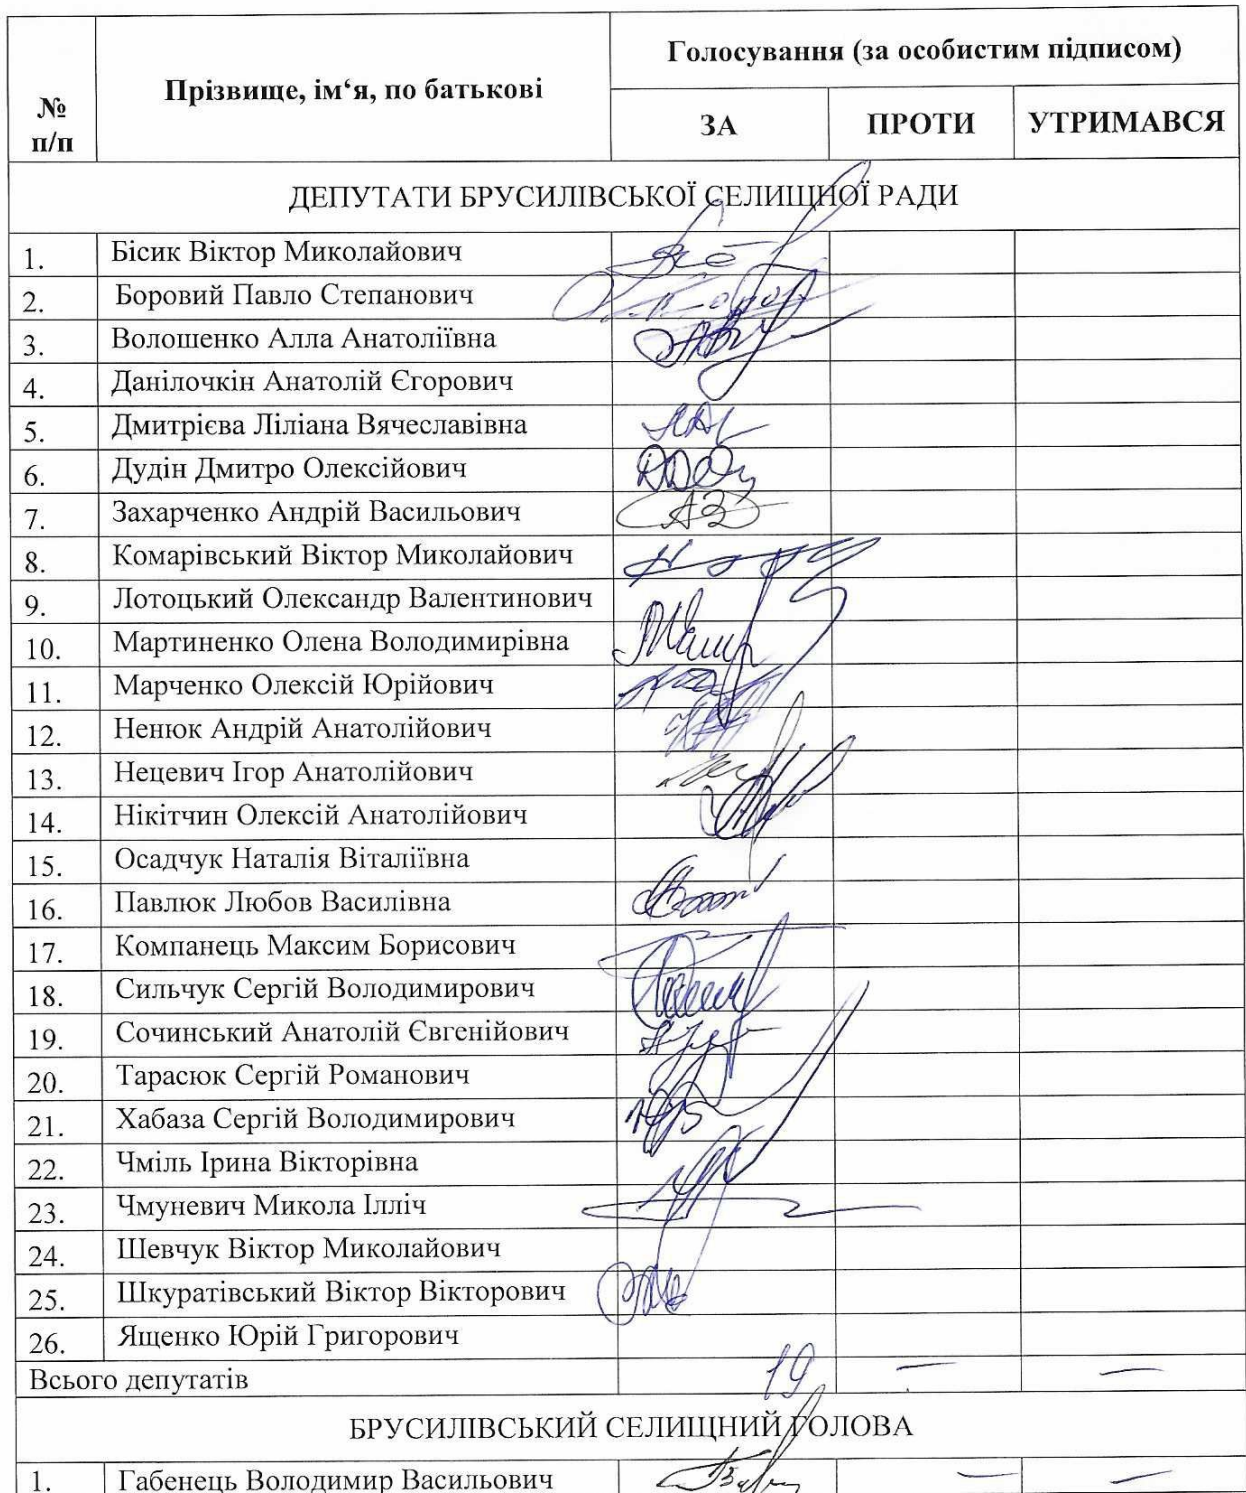 № п/п
Прізвище, ім‘я, по батькові
Голосування (за особистим підписом)
ЗА ПРОТИ УТРИМАВСЯ
ДЕПУТАТИ БРУСИЛІВСЬКОЇ СЕЛИЩНОЇ РАДИ
1. Бісик Віктор Миколайович
2. Боровий Павло Степанович
3. Волошенко Алла Анатоліївна
4. Данілочкін Анатолій Єгорович
5. Дмитрієва Ліліана Вячеславівна
6. Дудін Дмитро Олексійович
7. Захарченко Андрій Васильович
8. Комарівський Віктор Миколайович
9. Лотоцький Олександр Валентинович
10. Мартиненко Олена Володимирівна
11. Марченко Олексій Юрійович
12. Ненюк Андрій Анатолійович
13. Нецевич Ігор Анатолійович
14. Нікітчин Олексій Анатолійович
15. Осадчук Наталія Віталіївна
16. Павлюк Любов Василівна
17. Компанець Максим Борисович
18. Сильчук Сергій Володимирович
19. Сочинський Анатолій Євгенійович
20. Тарасюк Сергій Романович
21. Хабаза Сергій Володимирович
22. Чміль Ірина Вікторівна
23. Чмуневич Микола Ілліч
24. Шевчук Віктор Миколайович
25. Шкуратівський Віктор Вікторович
26. Ященко Юрій Григорович
Всього депутатів 19 — —
БРУСИЛІВСЬКИЙ СЕЛИЩНИЙ ГОЛОВА
1. Габенець Володимир Васильович — —